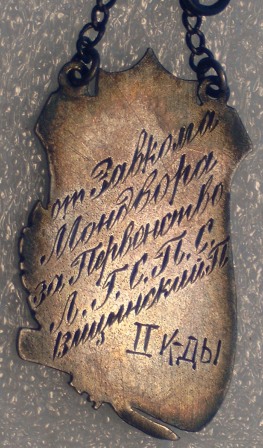 от Завкома
Мондвора
за Первенство
Л. Г. С. П. С.
Вищинский П.
II К-ДЫ